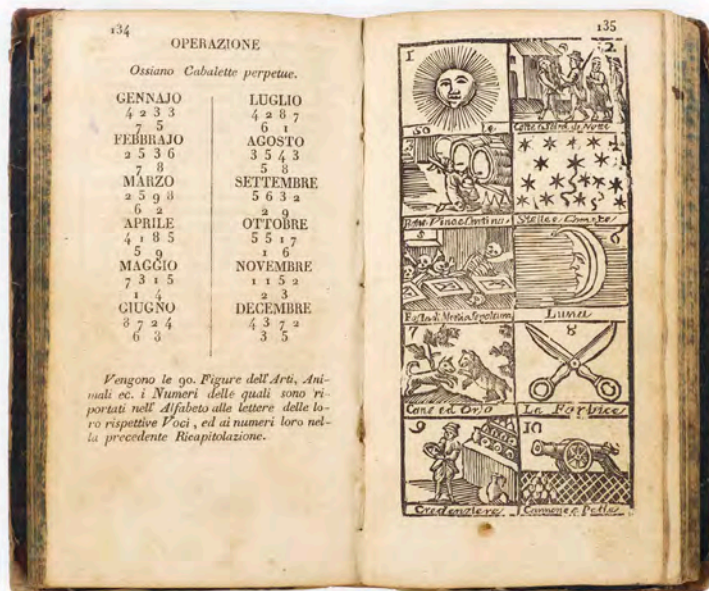 134
OPERAZIONE
Ossiano Cabalette perpetue.
GENNAJO
4 2 3 3
7 5
FEBBRAJO
2 5 3 6
7 8
MARZO
2 5 9 8
6 2
APRILE
4 1 8 5
5 9
MAGGIO
7 3 1 5
1 4
GIUGNO
8 7 2 4
6 3
LUGLIO
4 2 8 7
6 1
AGOSTO
3 5 4 3
5 8
SETTEMBRE
5 6 3 2
2 9
OTTOBRE
5 5 1 7
1 6
NOVEMBRE
1 1 5 2
2 3
DECEMBRE
4 3 7 2
3 5
Vengono le 90. Figure dell'Arti, Ani-
mali ec. i Numeri delle quali sono ri-
portati nell' Alfabeto alle lettere delle lo-
ro rispettive Voci, ed ai numeri loro nel-
la precedente Ricapitolazione.
135
1
2
So le
di Notte
Stelle e Comete
5
6
Luna
7
8
Cane ed Orso
Le Forbice
9
10
Credenziere
Cannone e Palle